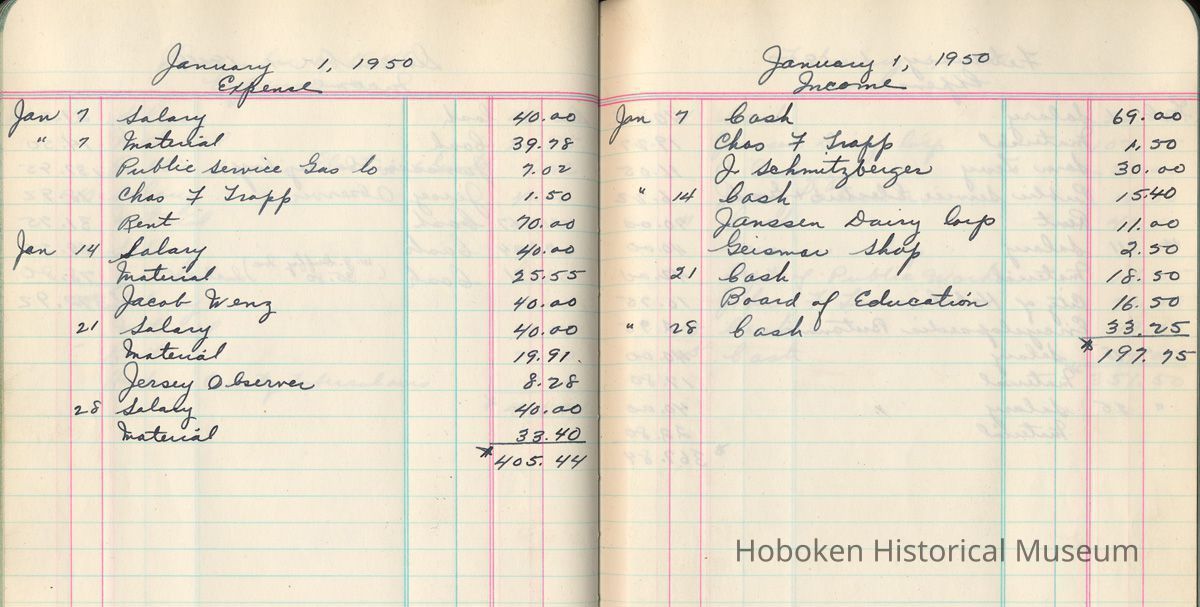 January 1, 1950
Expense
Jan 7 Salary 40.00
" 7 Material 39.78
Public Service Gas Co 7.02
Chas F Trapp 1.50
Rent 70.00
Jan 14 Salary 40.00
Material 25.55
Jacob Wenz 40.00
21 Salary 40.00
Material 19.91
Jersey Observer 8.28
28 Salary 40.00
Material 33.40
* 405.44
January 1, 1950
Income
Jan 7 Cash 69.00
Chas F Trapp 1.50
J. Schmitzberger 30.00
" 14 Cash 15.40
Janssen Dairy Corp 11.00
Geismar Shop 2.50
21 Cash 18.50
Board of Education 16.50
" 28 Cash 33.25
* 197.75
Hoboken Historical Museum